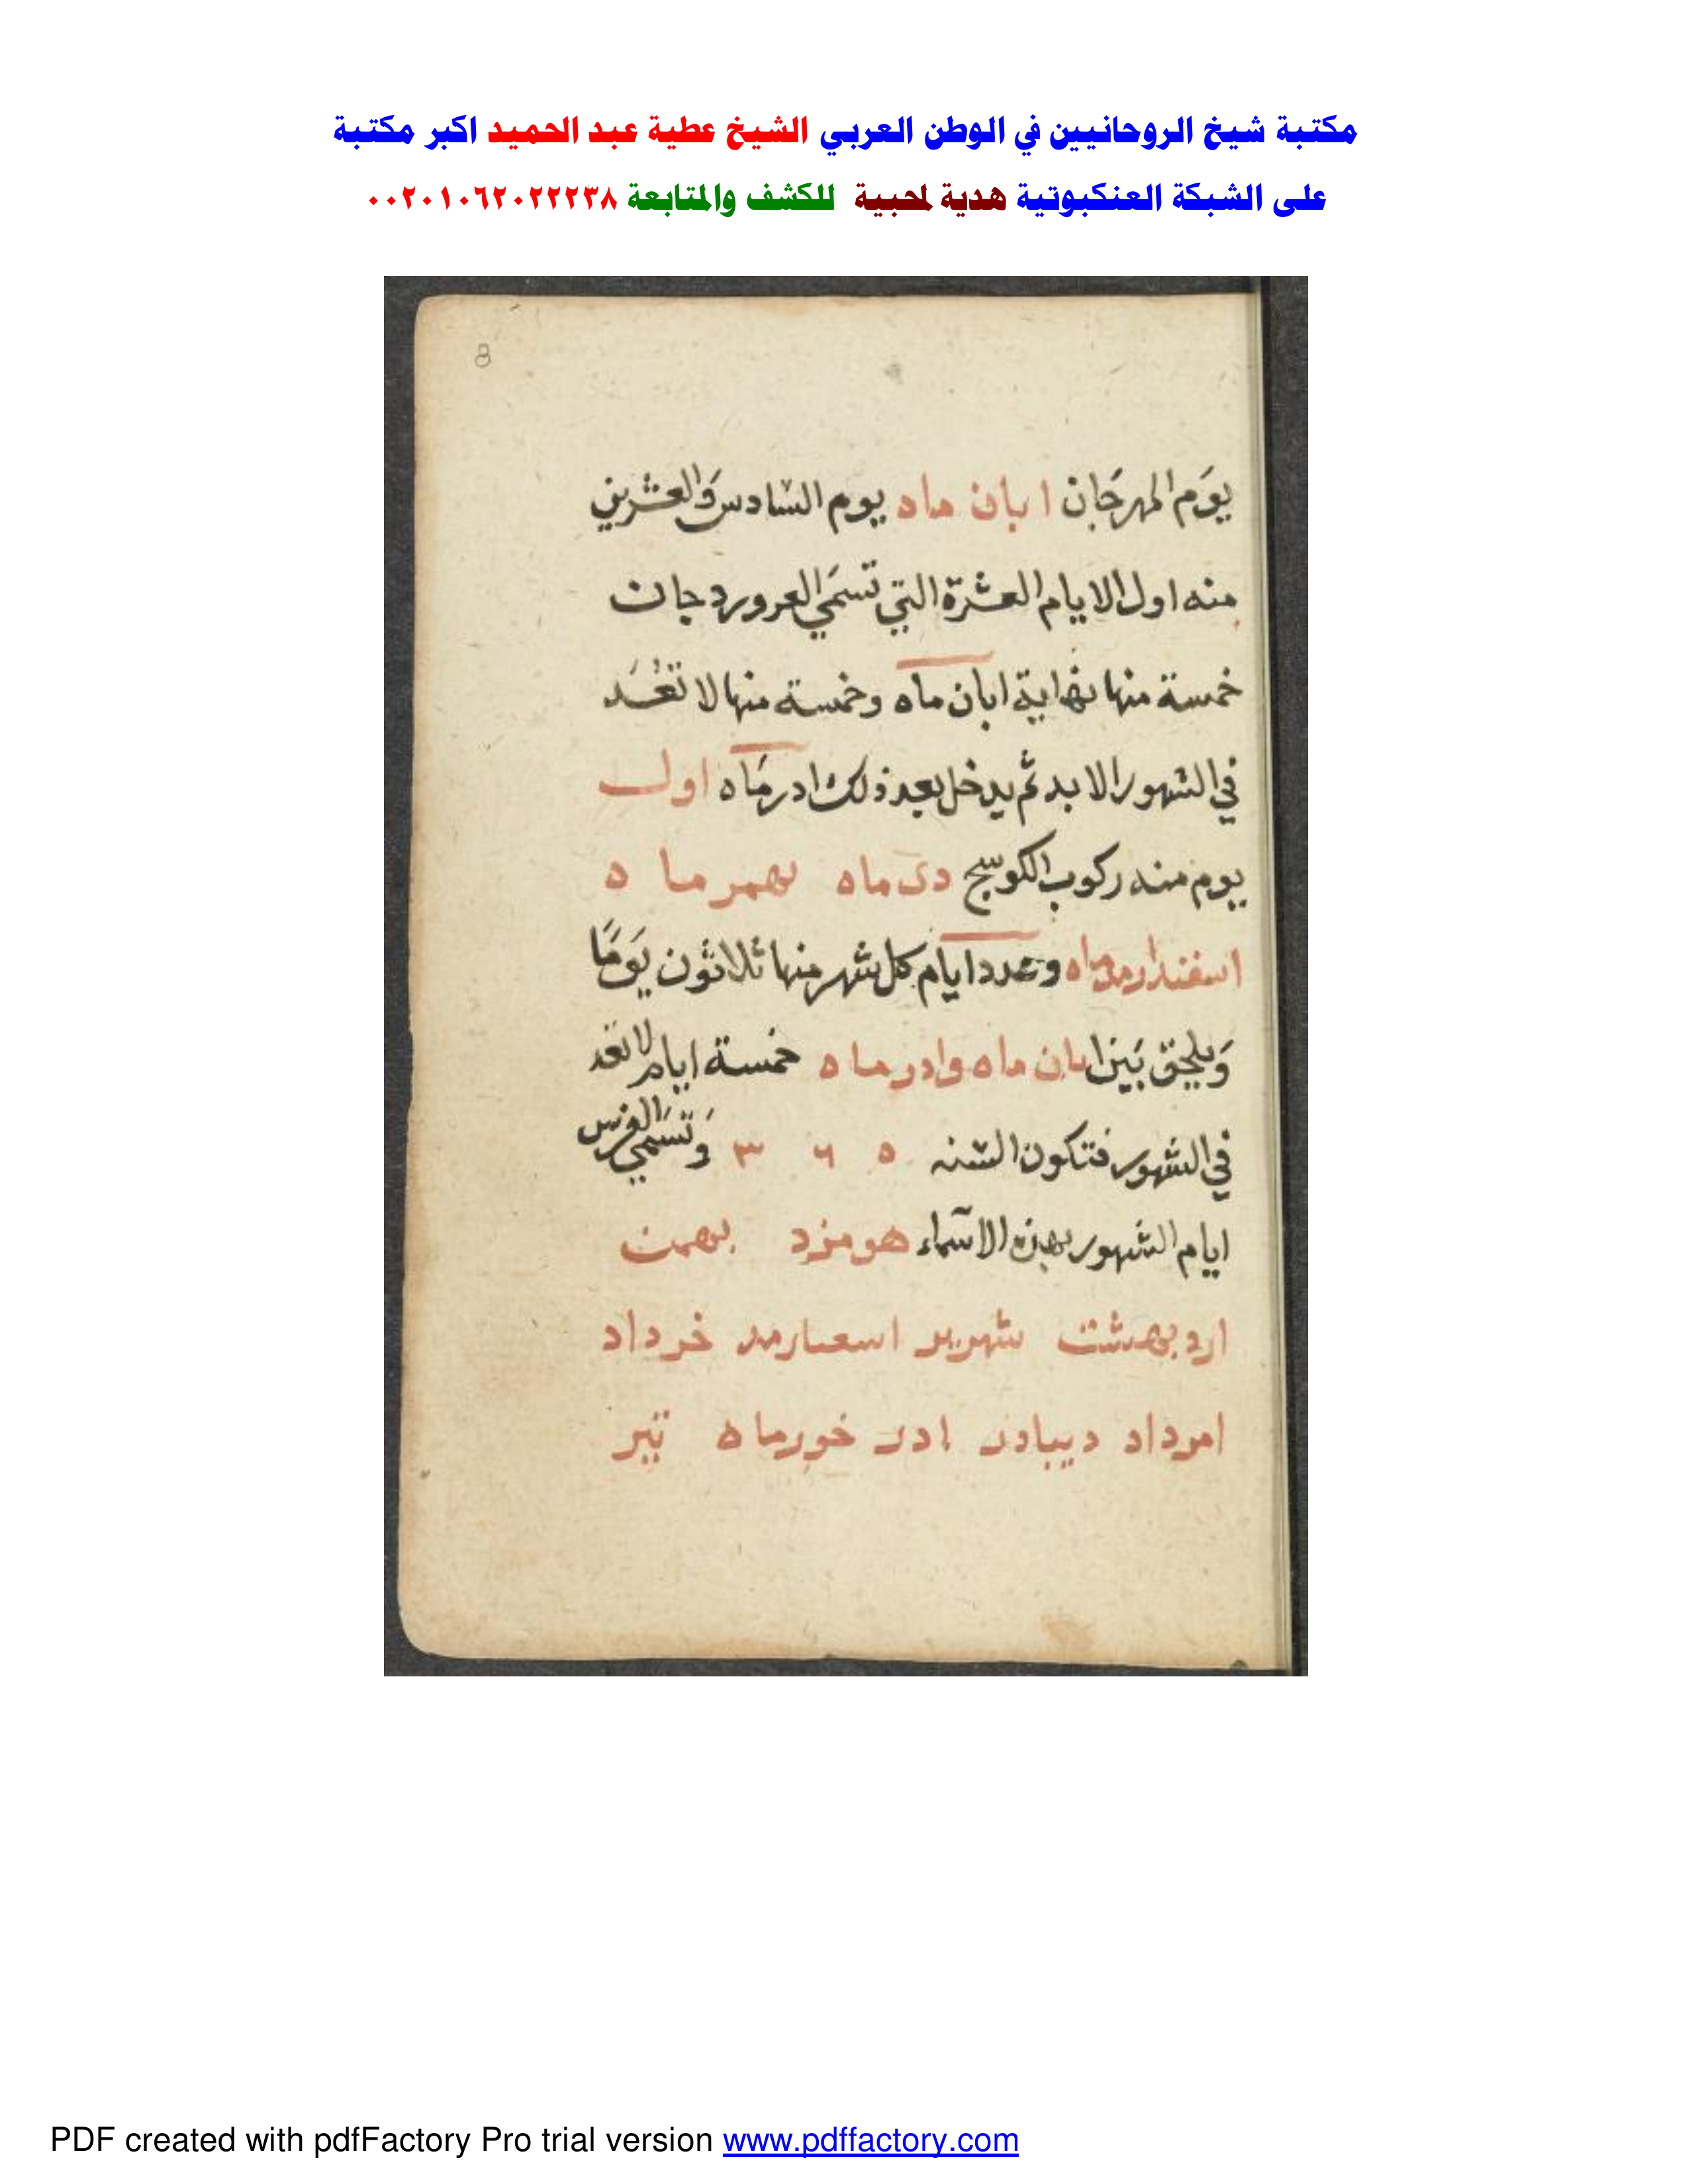 مكتبة شيخ الروحانيين في الوطن العربي الشيخ عطية عبد الحميد اكبر مكتبة
على الشبكة العنكبوتية هدية لمحبية للكشف والمتابعة ٠٠٢٠١٠٦٢٠٢٢٢٣٨
8
يوَم المهرجَان ابان ماه يوم السّادسَ وَالعشرين
منه اول الايام العشرة التي تسَمي العرورد جان
خمسة منها نهاية ابان ماه وخمسة منها لا تعُدَ
في الشهور الا بد ثم يدخل بعد ذلك ادرمَاه اول
يوم منه ركوب الكوسج دى ماه بهمر ماه
اسفندارمدماه وعدد ايام كل شهر منها ثلاثون يَومًا
وَيلحق بَين ابان ماه وادر ماه خمسة ايام لا تعد
في الشهور فتكون السّنه ٥ ٦ ٣ وَتسَمي الفرس
ايام الشهور بهذه الاسَماء هومزد بهمن
اردبهشت شهرير اسعىارمد خرداد
امرداد ديبادر ادر خورماه تير
PDF created with pdfFactory Pro trial version www.pdffactory.com